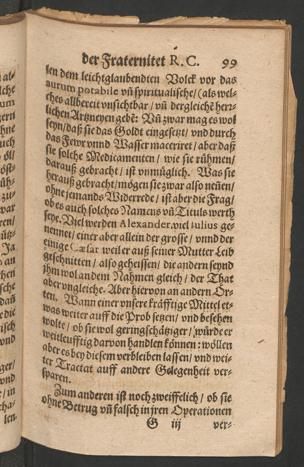 der Fraternitet R. C. 99
sen dem leichtglaubendten Volck vor das
aurum potabile vñ spiritualische / (als wel-
ches allbereit vnsichtbar / vñ dergleichē herr-
lichen Artzneyen gebē: Vñ zwar mag es wol
seyn / daß sie das Goldt eingesetzt / vnd durch
das Fewr vnnd Wasser maceriret / aber daß
sie solche Medicamenten / wie sie rühmen /
darauß gebracht / ist vnmüglich. Was sie
herauß gebracht / mögen sie zwar also neuen /
ohne jemands Widerrede / ist aber die Frag /
ob es auch solches Namens vñ Tituls werth
seye. Viel werden Alexander, viel Iulius ge-
nennet / einer aber allein der grosse / vnnd der
einige Cæsar weiler auß seiner Mutter Leib
geschnitten / also geheissen / die andern seynd
ihm wol an dem Nahmen gleich / der That
aber vngleiche. Aber hiervon an andern Ör-
ten. Wann einer vnsere kräfftige Mittel et-
was weiter auff die Prob setzen / vnd besehen
wolte / ob sie wol geringschätziger / würde er
weitleufftig darvon handlen können: wöllen
aber es bey diesem verbleiben lassen / vnd wei-
ter Tractat auff andere Gelegenheit ver-
sparen.
Zum anderen ist noch zweiffelich / ob sie
ohne Betrug vñ falsch in jren Operationen
G iij ver-